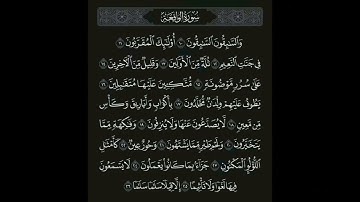 سُورَةُ الوَاقِعَة
وَالسَّٰبِقُونَ السَّٰبِقُونَ ١٠ أُولَٰئِكَ الْمُقَرَّبُونَ ١١
فِي جَنَّٰتِ النَّعِيمِ ١٢ ثُلَّةٌ مِّنَ الْأَوَّلِينَ ١٣ وَقَلِيلٌ مِّنَ الْآخِرِينَ ١٤
عَلَىٰ سُرُرٍ مَّوْضُونَةٍ ١٥ مُّتَّكِـِٔينَ عَلَيْهَا مُتَقَٰبِلِينَ ١٦
يَطُوفُ عَلَيْهِمْ وِلْدَٰنٌ مُّخَلَّدُونَ ١٧ بِأَكْوَابٍ وَأَبَارِيقَ وَكَأْسٍ
مِّن مَّعِينٍ ١٨ لَّا يُصَدَّعُونَ عَنْهَا وَلَا يُنزِفُونَ ١٩ وَفَٰكِهَةٍ مِّمَّا
يَتَخَيَّرُونَ ٢٠ وَلَحْمِ طَيْرٍ مِّمَّا يَشْتَهُونَ ٢١ وَحُورٌ عِينٌ ٢٢ كَأَمْثَٰلِ
اللُّؤْلُؤِ الْمَكْنُونِ ٢٣ جَزَآءً بِمَا كَانُوا يَعْمَلُونَ ٢٤ لَا يَسْمَعُونَ
فِيهَا لَغْوًا وَلَا تَأْثِيمًا ٢٥ إِلَّا قِيلًا سَلَٰمًا سَلَٰمًا ٢٦